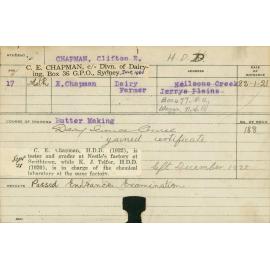 STUDENT
CHAPMAN, Clifton E.
H D D
C. E. CHAPMAN, c/- Divn. of Dairy-
ing, Box 36 G.P.O., Sydney
17
E. Chapman
Dairy
Farmer
Neilsons Creek
Jerrys Plains
22-1-21
Box 477, P.O.,
Wagga N.S.W
COURSE OF
Butter Making
No.
188
Dairy Science Course
gained certificate
C. E. Chapman, H.D.D. (1922), is
tester and grader at Nestle's factory at
Smithtown, while K. J. Telfer, H.D.D.
(1920), is in charge of the chemical
laboratory at the same factory.
left December 1920
RESULTS
Passed Entrance Examination